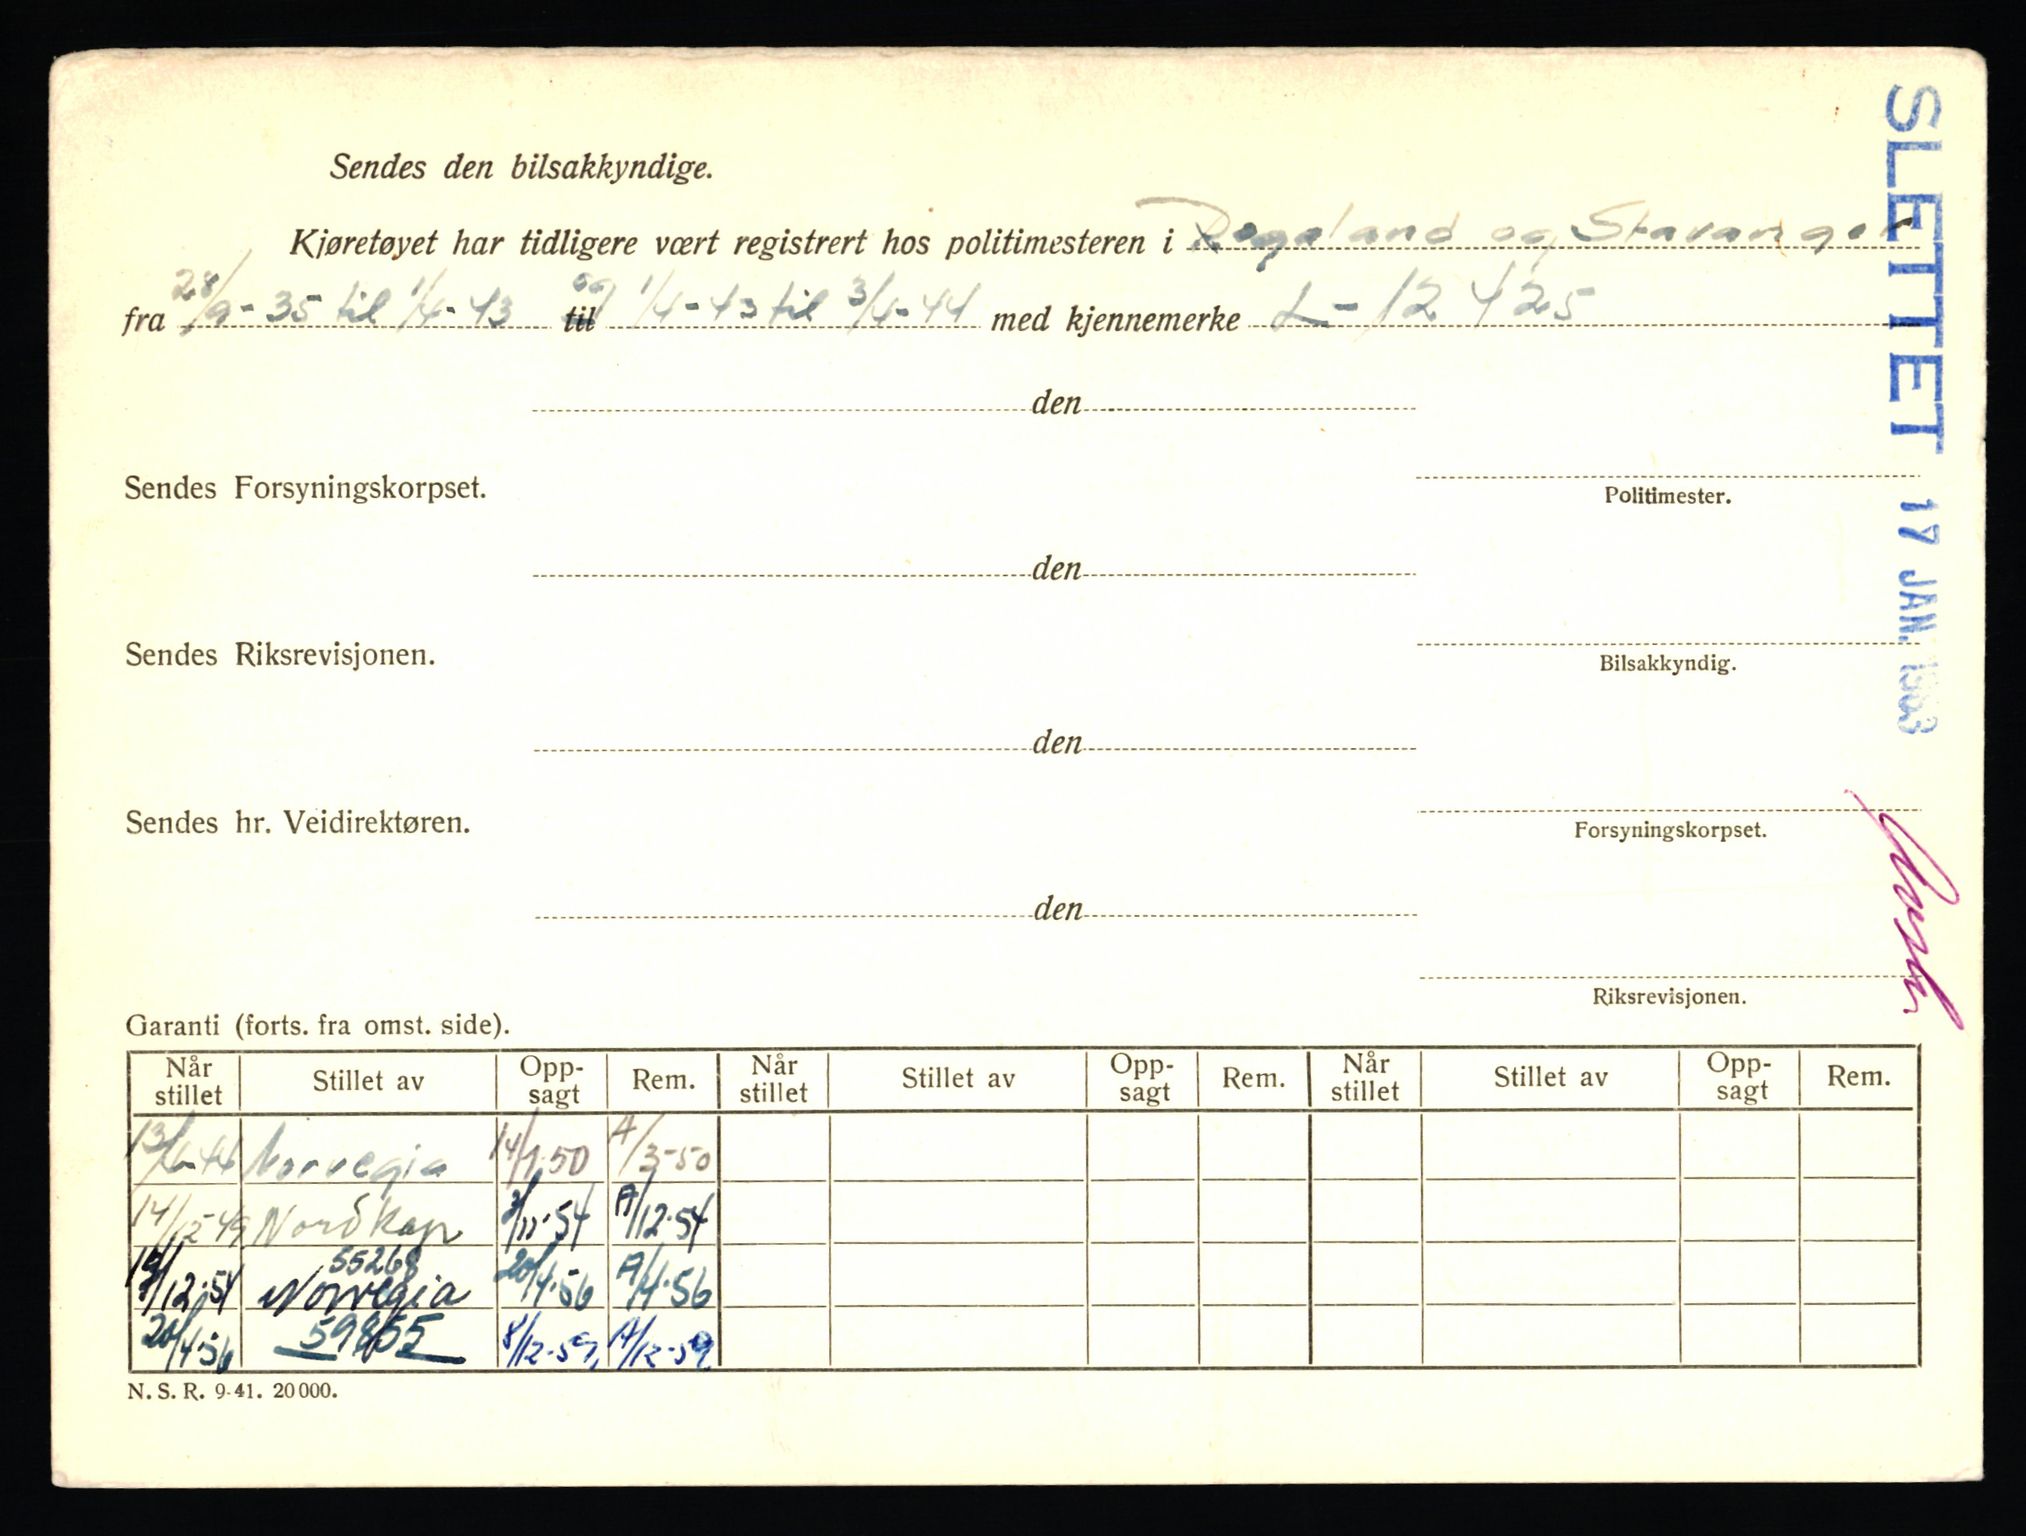 Sendes den bilsakkyndige.
Kjøretøyet har tidligere vært registrert hos politimesteren i Rogaland og Stavanger
fra 28/9-35 til 1/4-43 til og 1/4-43 til 3/4-44 med kjennemerke L-12425
den
Sendes Forsyningskorpset.
Politimester.
den
Sendes Riksrevisjonen.
Bilsakkyndig.
den
Sendes hr. Veidirektøren.
Forsyningskorpset.
den
Riksrevisjonen.
SLETTET 17 JAN. 1963
Garanti (forts. fra omst. side).
Når stillet Stillet av Opp-sagt Rem. Når stillet Stillet av Opp-sagt Rem. Når stillet Stillet av Opp-sagt Rem.
13/4-44 Norvegia 14/1.50 A/3-50
14/12-49 Nordkap 3/11.54 A/12.54
55268
/12.54 Norvegia 20/4.56 A/4.56
20/4.56 59855 8/12-59, A/12-59
N. S. R. 9-41. 20 000.